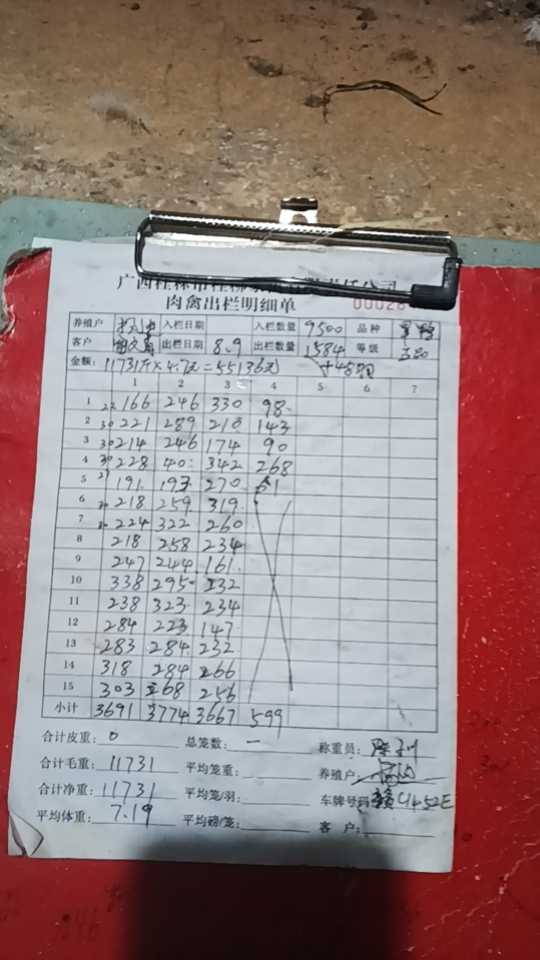 肉禽出栏明细单
养殖户 入栏日期 入栏数量 9500 品种
客户 出栏日期 8.9 出栏数量 1584 等级
金额: 11731斤×4.7元=55136元
1 2 3 4 5 6 7
1 166 246 330 98
2 30 221 289 210 143
3 30 214 246 174 90
4 30 228 40 342 268
5 191 193 270
6 218 259 319
7 224 322 260
8 218 258 234
9 247 244 161
10 338 295 232
11 238 323 234
12 284 223 147
13 283 284 232
14 318 284 266
15 303 268 256
小计 3691 3774 3667 599
合计皮重: 0 总笼数: 一 称重员:
合计毛重: 11731 平均笼重: 养殖户:
合计净重: 11731 平均笼/羽: 车牌号码
平均体重: 7.19 平均磅/笼: 客 户: